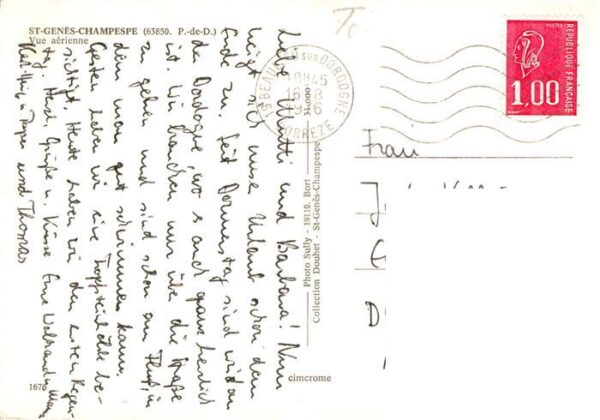 ST-GENÈS-CHAMPESPE (63850. P.-de-D.)
Vue aérienne
Liebe Mutti und Barbara! Nun
neigt sich unser Urlaub schon dem
Ende zu. Seit Donnerstag sind wir an
der Dordogne, wo s auch ganz herrlich
ist. Wir brauchen nur über die Straße
zu gehen und sind schon am Fluß, in
dem man gut schwimmen kann.
Gestern haben wir eine Tropfsteinhöhle be-
sichtigt. Heute haben wir den ersten Regen-
tag. Herzl. Grüße u. Küsse Eure
und Thomas
1676
cimcrome
Photo Sully - 19110. Bort -
Collection Douhet - St-Genès-Champespe
19 BEAULIEU SUR DORDOGNE
18H45
16-8
1976
CORREZE
POSTES
REPUBLIQUE FRANÇAISE
1,00
Frau
J
D